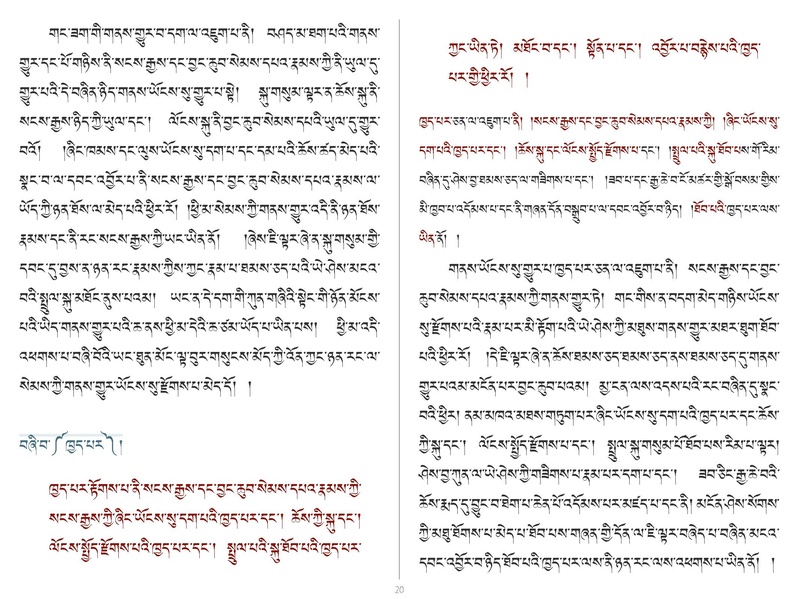 གང་ཟག་གི་གནས་གྱུར་བ་དག་ལ་འཇུག་པ་ནི། བཤད་མ་ཐག་པའི་གནས་
གྱུར་དང་པོ་གཉིས་ནི་སངས་རྒྱས་དང་བྱང་ཆུབ་སེམས་དཔའ་རྣམས་ཀྱི་ནི་ཡུལ་དུ་
གྱུར་པའི་དེ་བཞིན་ཉིད་གནས་ཡོངས་སུ་གྱུར་པ་སྟེ། སྐུ་གསུམ་ལྟར་ན་ཆོས་སྐུ་ནི་
སངས་རྒྱས་ཉིད་ཀྱི་ཡུལ་དང་། ལོངས་སྐུ་ནི་བྱང་ཆུབ་སེམས་དཔའི་ཡུལ་དུ་གྱུར་
བའོ། །ཞིང་ཁམས་དང་ལུས་ཡོངས་སུ་དག་པ་དང་དམ་པའི་ཆོས་ཚད་མེད་པའི་
སྣང་བ་ལ་དབང་འབྱོར་པ་ནི་སངས་རྒྱས་དང་བྱང་ཆུབ་སེམས་དཔའ་རྣམས་ལ་
ཡོད་ཀྱི་ཉན་ཐོས་ལ་མེད་པའི་ཕྱིར་རོ། །ཕྱི་མ་སེམས་ཀྱི་གནས་གྱུར་འདི་ནི་ཉན་ཐོས་
རྣམས་དང་ནི་རང་སངས་རྒྱས་ཀྱི་ཡང་ཡིན་ནོ། །ཞེས་ཇི་ལྟར་ཞེ་ན་སྐུ་གསུམ་གྱི་
དབང་དུ་བྱས་ན་ཉན་རང་རྣམས་ཀྱིས་ཀྱང་རྣམ་པ་ཐམས་ཅད་པའི་ཡེ་ཤེས་མངའ་
བའི་སྤྲུལ་སྐུ་མཐོང་ནུས་པའམ། ཡང་ན་དེ་དག་གི་ཀུན་གཞིའི་སྟེང་གི་ཉོན་མོངས་
པའི་ཡིད་གནས་གྱུར་པའི་ཆ་ནས་ཕྱི་མ་དེའི་ཆ་ཙམ་ཡོད་པ་ཡིན་པས། ཕྱི་མ་འདི་
འཕགས་པ་བཞི་བོའི་ཡང་ཐུན་མོང་ལྟ་བུར་གསུངས་མོད་ཀྱི་འོན་ཀྱང་ཉན་རང་ལ་
སེམས་ཀྱི་གནས་གྱུར་ཡོངས་སུ་རྫོགས་པ་མེད་དོ། །
བཞི་བ་༼ཁྱད་པར་༽།
ཁྱད་པར་རྟོགས་པ་ནི་སངས་རྒྱས་དང་བྱང་ཆུབ་སེམས་དཔའ་རྣམས་ཀྱི་
སངས་རྒྱས་ཀྱི་ཞིང་ཡོངས་སུ་དག་པའི་ཁྱད་པར་དང་། ཆོས་ཀྱི་སྐུ་དང་།
ལོངས་སྤྱོད་རྫོགས་པའི་ཁྱད་པར་དང་། སྤྲུལ་པའི་སྐུ་ཐོབ་པའི་ཁྱད་པར་
ཀྱང་ཡིན་ཏེ། མཐོང་བ་དང་། སྟོན་པ་དང་། འབྱོར་པ་བརྙེས་པའི་ཁྱད་
པར་གྱི་ཕྱིར་རོ། །
ཁྱད་པར་ཅན་ལ་འཇུག་པ་ནི། །སངས་རྒྱས་དང་བྱང་ཆུབ་སེམས་དཔའ་རྣམས་ཀྱི། །ཞིང་ཡོངས་སུ་
དག་པའི་ཁྱད་པར་དང་། །ཆོས་སྐུ་དང་ལོངས་སྤྱོད་རྫོགས་པ་དང་། །སྤྲུལ་པའི་སྐུ་ཐོབ་པས་གོ་རིམ་
བཞིན་དུ་ཤེས་བྱ་ཐམས་ཅད་ལ་གཟིགས་པ་དང་། །ཟབ་པ་དང་རྒྱ་ཆེ་བ་ངོ་མཚར་གྱི་སྒོ་བསམ་གྱིས་
མི་ཁྱབ་པ་འདོམས་པ་དང་ནི་གཞན་དོན་བསྒྲུབ་པ་ལ་དབང་འབྱོར་བ་ཉིད། །ཐོབ་པའི་ཁྱད་པར་ལས་
ཡིན་ནོ། །
གནས་ཡོངས་སུ་གྱུར་པ་ཁྱད་པར་ཅན་ལ་འཇུག་པ་ནི། སངས་རྒྱས་དང་བྱང་
ཆུབ་སེམས་དཔའ་རྣམས་ཀྱི་གནས་གྱུར་ཏེ། གང་གིས་ན་བདག་མེད་གཉིས་ཡོངས་
སུ་རྫོགས་པའི་རྣམ་པར་མི་རྟོག་པའི་ཡེ་ཤེས་ཀྱི་མཐུས་གནས་གྱུར་མཐར་ཐུག་ཐོབ་
པའི་ཕྱིར་རོ། །དེ་ཇི་ལྟར་ཞེ་ན་ཆོས་ཐམས་ཅད་ཐམས་ཅད་ནས་ཐམས་ཅད་དུ་གནས་
གྱུར་པའམ་མངོན་པར་བྱང་ཆུབ་པའམ། མྱ་ངན་ལས་འདས་པའི་རང་བཞིན་དུ་སྣང་
བའི་ཕྱིར། ནམ་མཁའ་མཐས་གཏུག་པར་ཞིང་ཡོངས་སུ་དག་པའི་ཁྱད་པར་དང་ཆོས་
ཀྱི་སྐུ་དང་། ལོངས་སྤྱོད་རྫོགས་པ་དང་། སྤྲུལ་སྐུ་གསུམ་པོ་ཐོབ་པས་རིམ་པ་ལྟར།
ཤེས་བྱ་ཀུན་ལ་ཡེ་ཤེས་ཀྱི་གཟིགས་པ་རྣམ་པར་དག་པ་དང་། ཟབ་ཅིང་རྒྱ་ཆེ་བའི་
ཆོས་རྨད་དུ་བྱུང་བ་ཐེག་པ་ཆེན་པོ་འདོམས་པར་མཛད་པ་དང་ནི། མངོན་ཤེས་སོགས་
ཀྱི་མཐུ་ཐོགས་པ་མེད་པ་ཐོབ་པས་གཞན་གྱི་དོན་ལ་ཇི་ལྟར་བཞེད་པ་བཞིན་མངའ་
དབང་འབྱོར་བ་ཉིད་ཐོབ་པའི་ཁྱད་པར་ལས་ནི་ཉན་རང་ལས་འཕགས་པ་ཡིན་ནོ། །
20